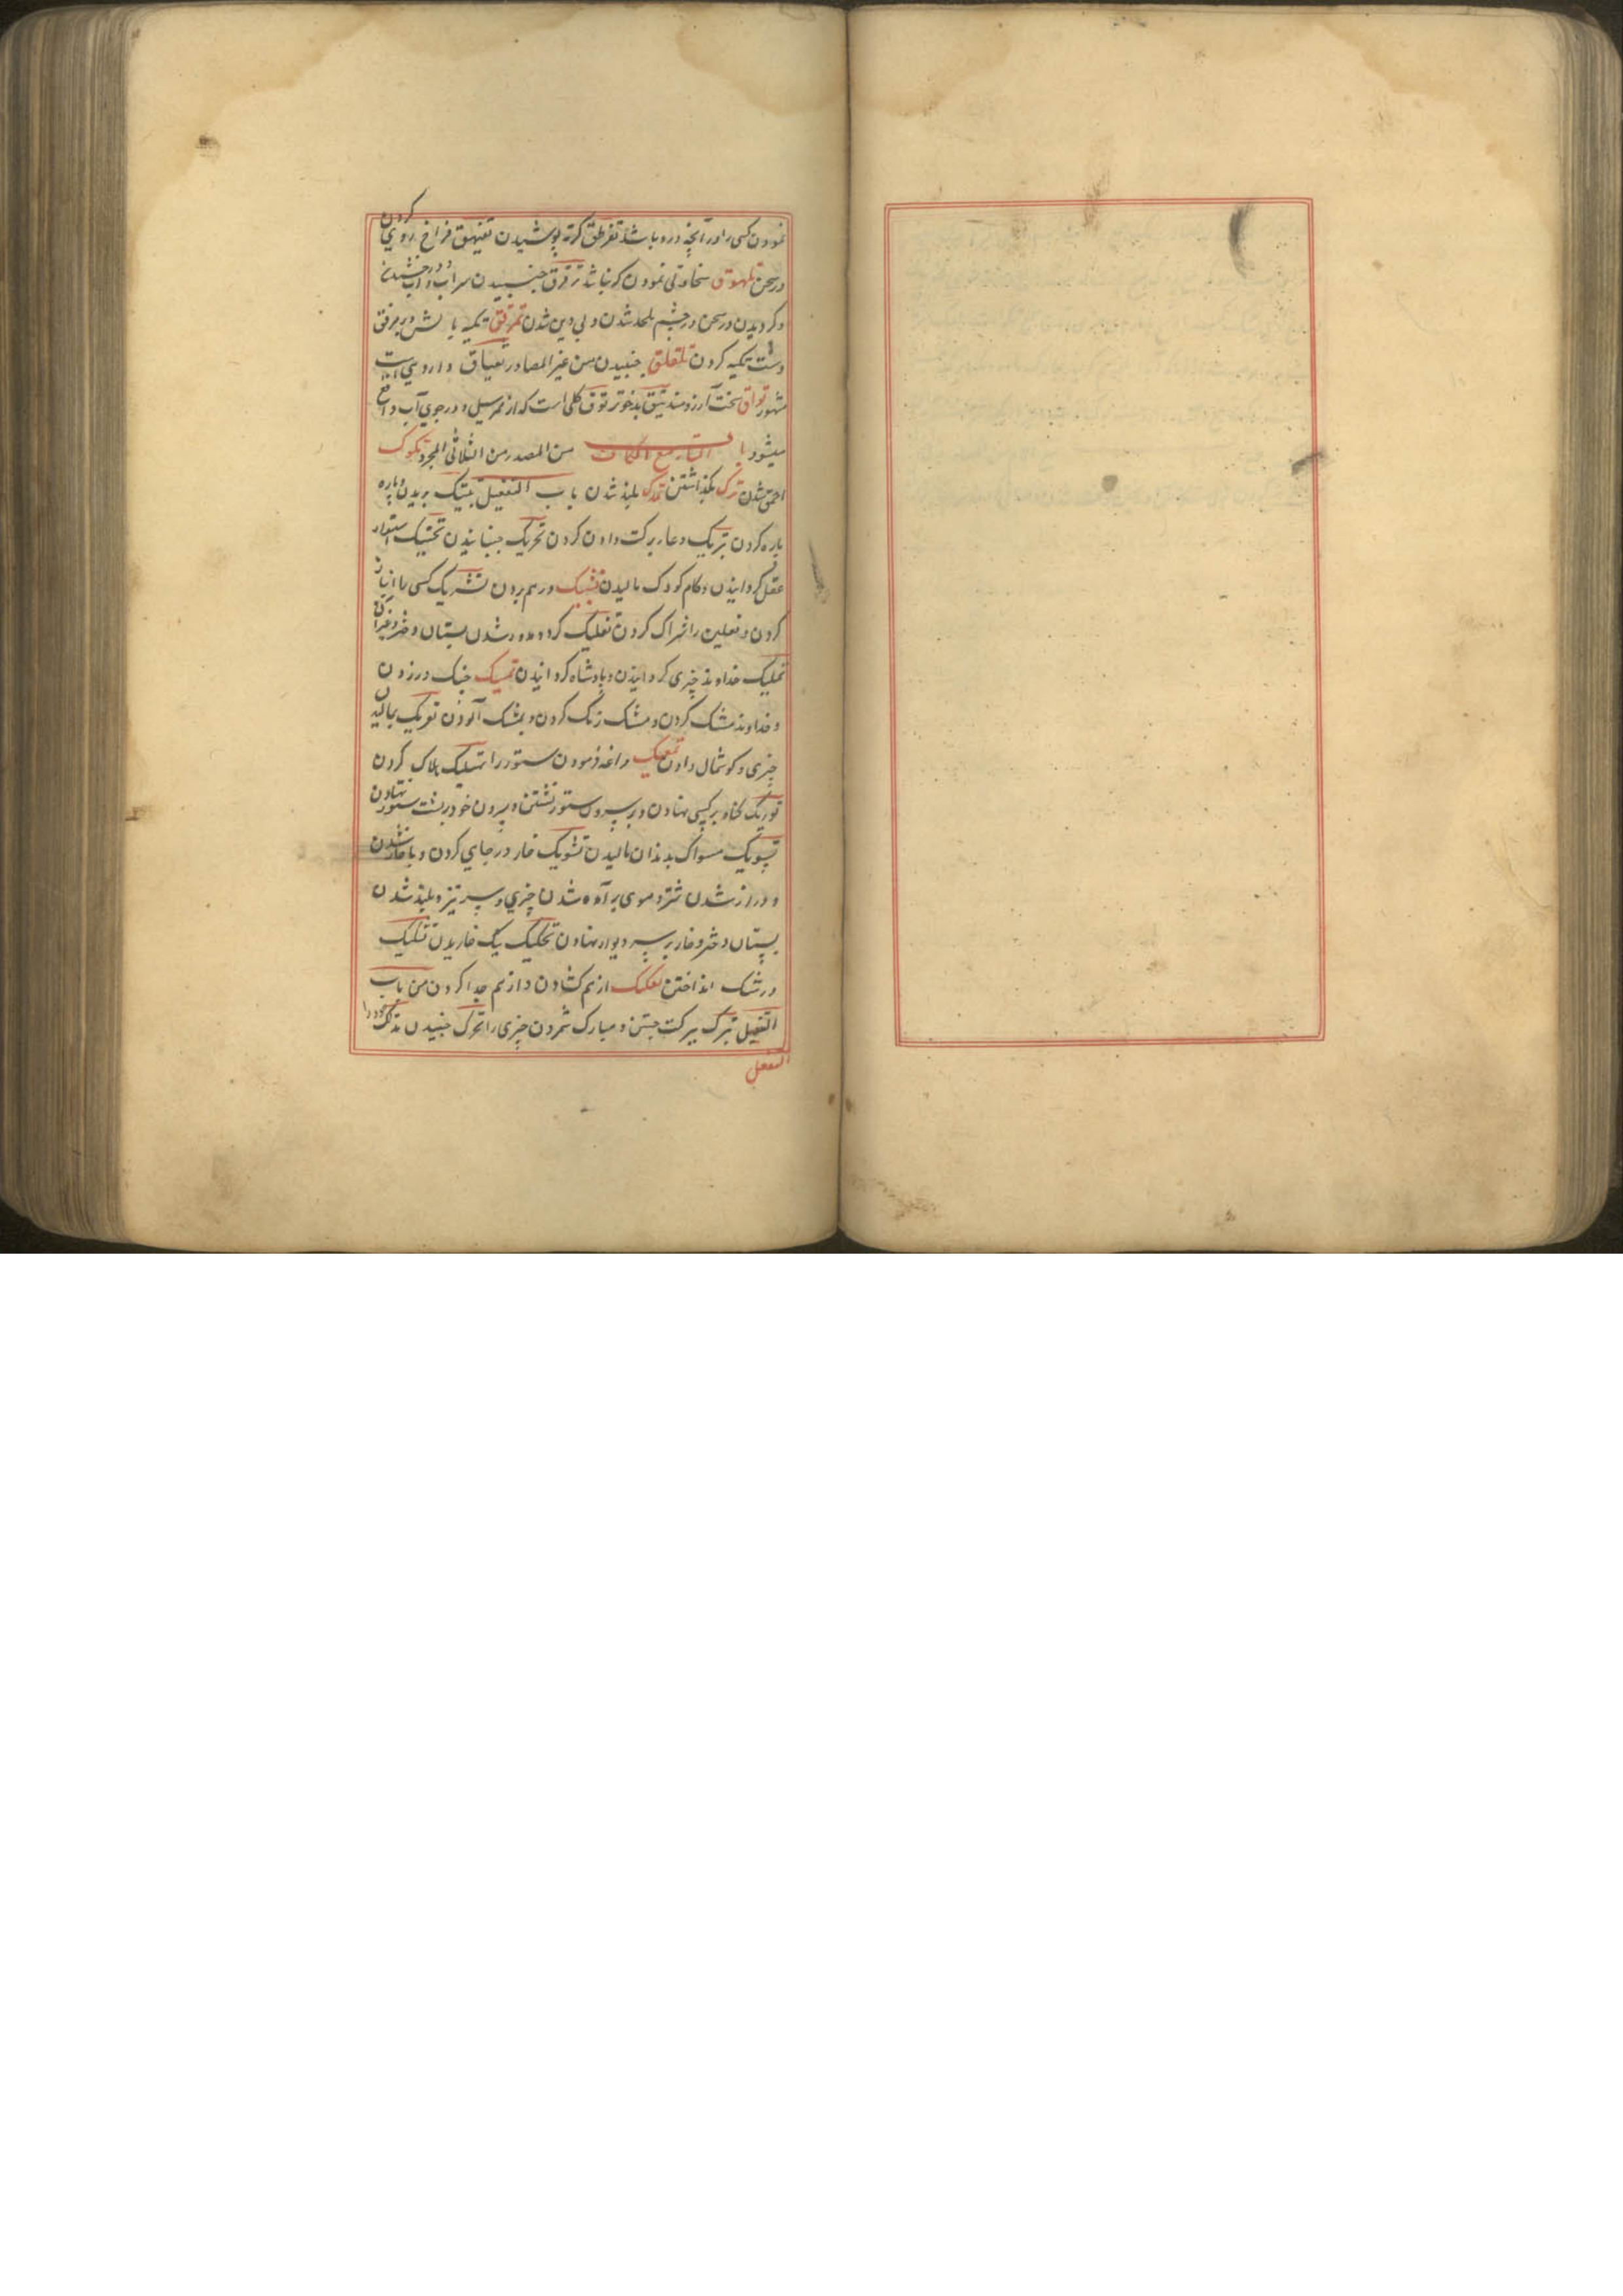 نمودن کسی را در آنچه درو باشد تقرطق کرته پوشیدن تفیهق فراخ روی کردن
در سخن تلهوق سخاوتی نمودن که نباشد ترقرق جنبیدن سراب و آب
و کردیدن در سخن در چشم ملحد شدن و بی دین شدن تمرفق تکیه بالش و بر مرفق
دست تکیه کردن تلقلق جنبیدن من غیر المصادر تریاق داروی است
مشهور تواق سخت آرزومند تیق بدخوتر توق کلی است که از ممر سیل و در جوی آب واقع
میشود باب التاء مع الکاف من المصدر من الثلاثی المجرد تکوک
احمق شدن ترک بگذاشتن تمک بلند شدن باب التفعیل تبتیک بریدن و پاره
پاره کردن تبریک دعا ببرکت دادن کردن تحریک جنبانیدن تحنیک استوار
عقل کردانیدن و کام کودک مالیدن تشبیک در هم بردن تشریک کسی را انباز
کردن و نعلین را شراک کردن تفلیک کرد شدن پستان دختر
تملیک خداوند چیزی کردانیدن و پادشاه کردانیدن تمسیک چنک در زدن
و خداوند مشک کردن و مشک رنک کردن و بمشک آلودن تعریک بمالیدن
چیزی و کوشمال دادن تمعیک مراغه فرمودن ستور را تهلیک هلاک کردن
توریک کناه بر کسی نهادن و بر سرون ستور نشستن و سرون خود بر پشت ستور نهادن
تسویک مسواک بدندان مالیدن تشویک خار در جای کردن و با خار شدن
و دراز شدن شتر و موی برآمده شدن چیزی و سر تیز و بلند شدن
پستان دختر و خار بر سر دیوار نهادن تحکیک نیک خاریدن تشکیک
در شک انداختن تفکیک از هم کشادن و از هم جدا کردن من باب
التفعل تبرک ببرکت جستن و مبارک شمردن چیزی را تحرک جنبیدن
التفعل